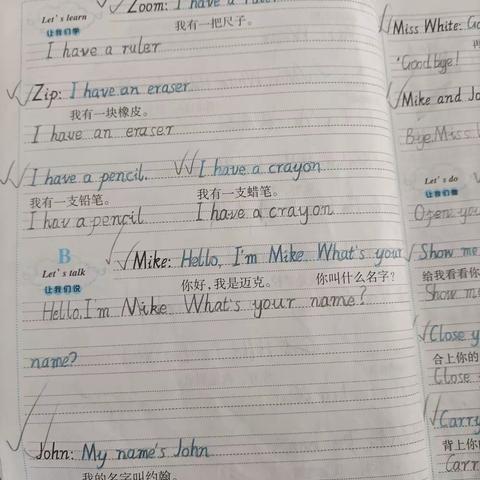 Zoom: I have a ruler
Let's learn
让我们学
我有一把尺子。
I have a ruler
Zip: I have an eraser
我有一块橡皮。
I have an eraser
I have a pencil. I have a crayon
我有一支铅笔。 我有一支蜡笔。
I hav a pencil I have a crayon
B
Let's talk
让我们说
Mike: Hello, I'm Mike. What's your
你好,我是迈克。 你叫什么名字?
Hello, I'm Mike What's your name?
name?
John: My name's John
我的名字叫约翰。
Miss White:
Goodbye!
Mike and
Bye, Miss
Let's do
让我们做
Open
Show me
给我看看你
Show me
Close
合上你的
Close
Carry
背上你
Carr